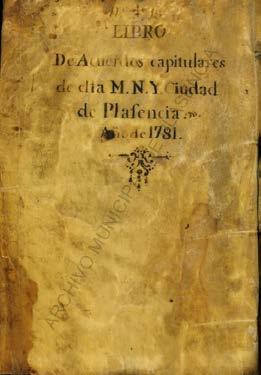 LIBRO
De Acuerdos capitulares
de esta M. N. Y. Ciudad
de Plasencia
Año de 1781.
ARCHIVO MUNICIPAL DE PLASENCIA